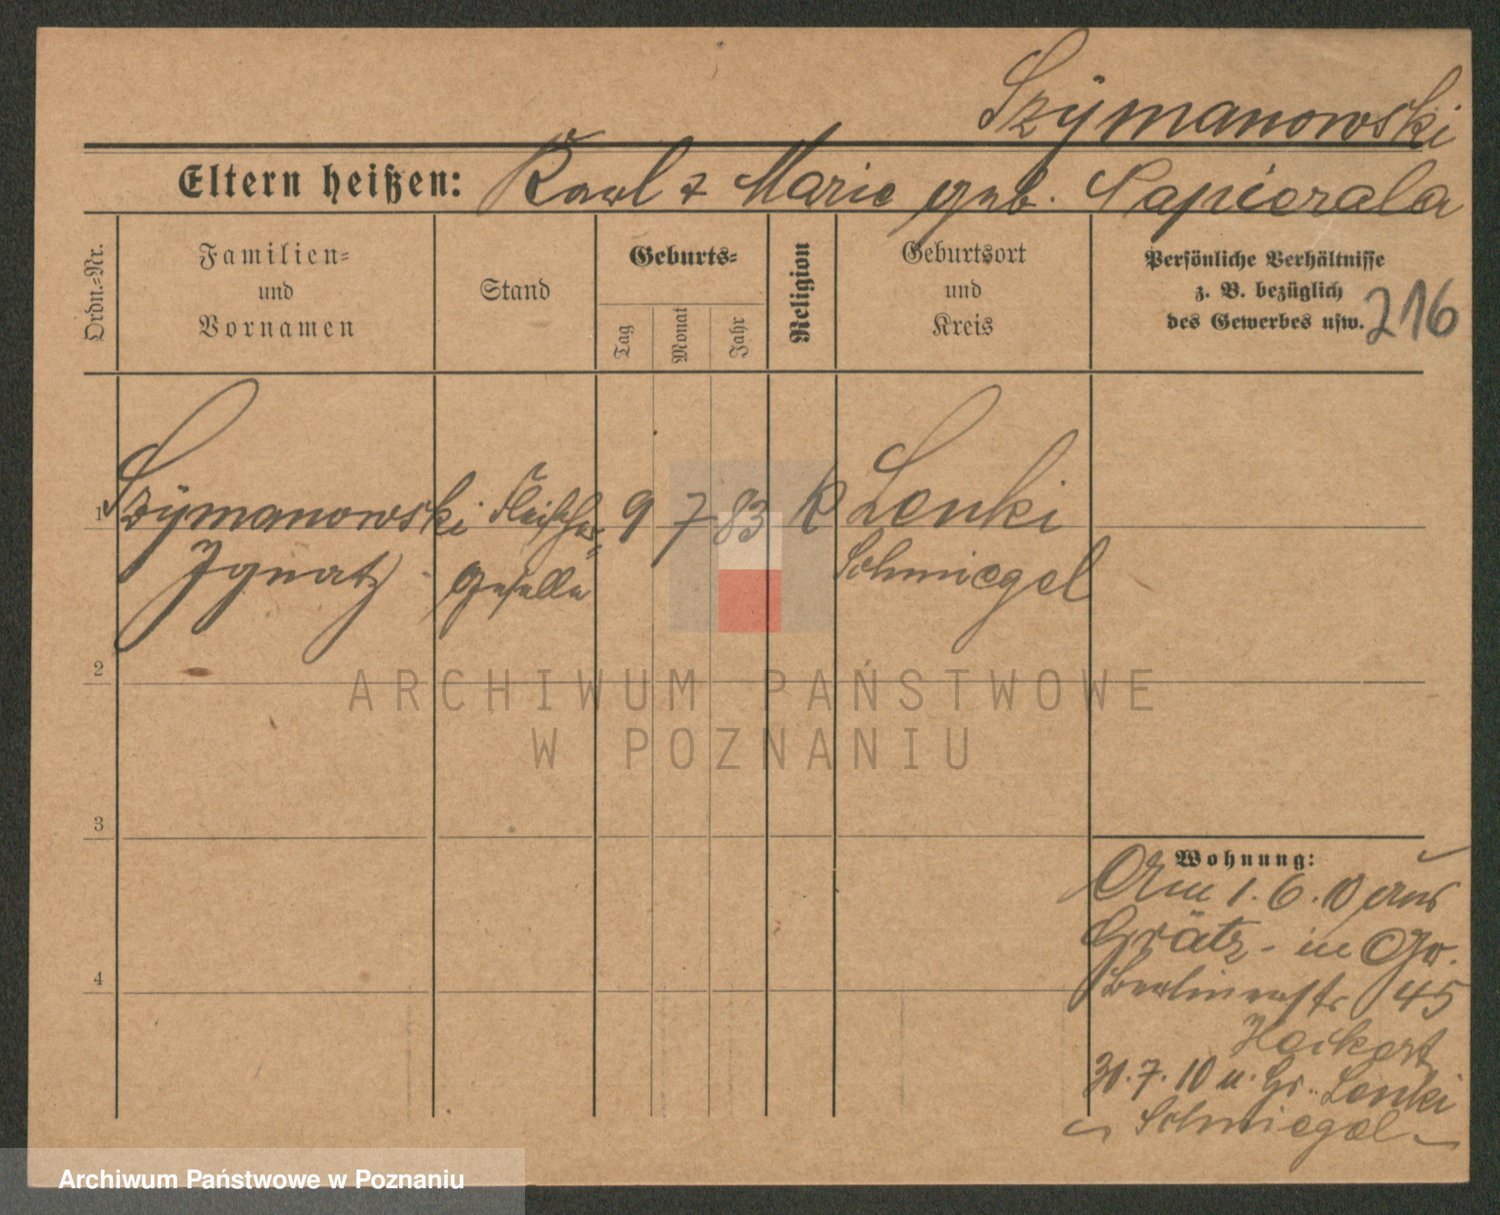 Szymanowski
Eltern heißen: Karl & Marie geb. Papierala
Ordn.-Nr.
Familien-
und
Vornamen
Stand
Geburts-
Tag
Monat
Jahr
Religion
Geburtsort
und
Kreis
Persönliche Verhältnisse
z. B. bezüglich
des Gewerbes usw.
216
1
Szymanowski Fleischer- 9 7 83 K Lenki
Ignatz geselle Schmiegel
2
ARCHIWUM PAŃSTWOWE
W POZNANIU
3
Wohnung:
Am 1.6.10 aus
Grätz - in
Berlinerstr 45
4
31.7.10 n. Gr. Lenki
Schmiegel
Archiwum Państwowe w Poznaniu